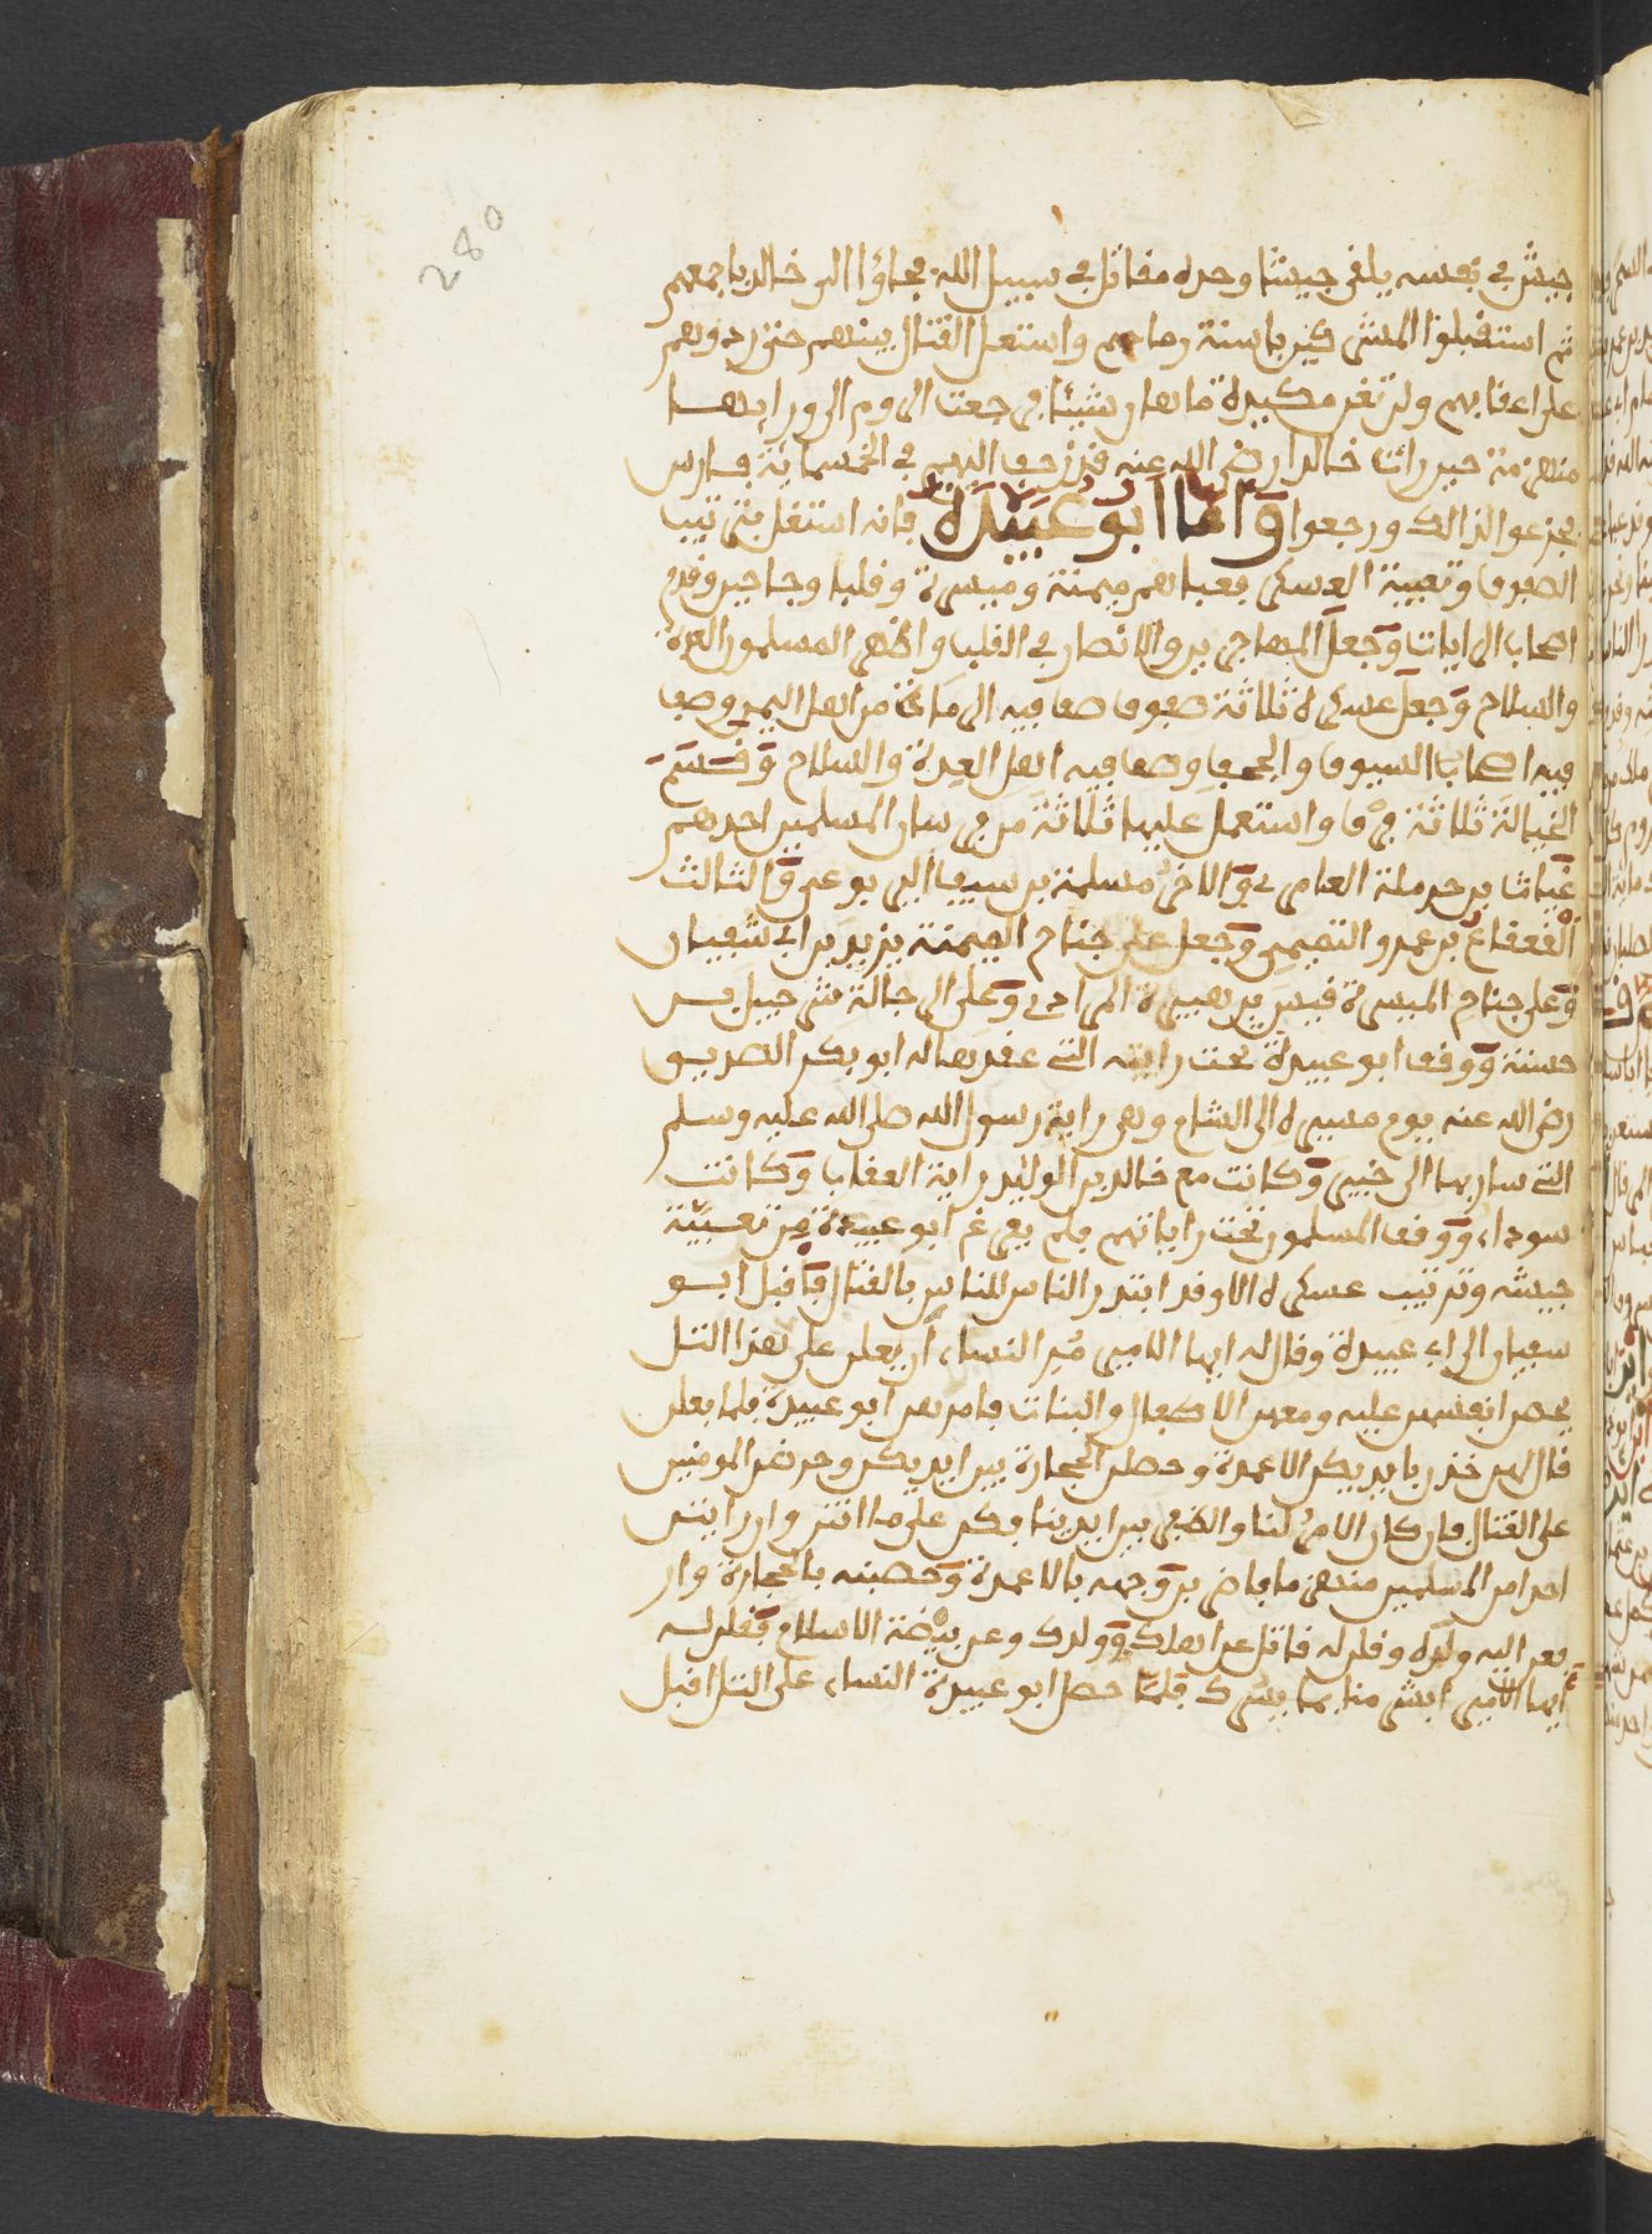 280
جيش في نفسه يلقى جيشا وحده مقاتل في سبيل الله فجاؤا الى خالد باجمعهم
ثم استقبلوا المشركين باسنة رماحهم واشتعل القتال بينهم حتى ردوهم
على اعقابهم ولم تغن مكيدة ماهان شيئا فرجعت الروم الى ورايها
منهزمة حين رات خالدا رضي الله عنه قد زحف اليهم في الخمسماية فارس
فجزعوا لذالك ورجعوا واما ابو عبيدة فانه اشتغل بترتيب
الصفوف وتعبية العسكر فعباهم ميمنة وميسرة وقلبا وجناحين وقدم
اصحاب الرايات وجعل المهاجرين والانصار في القلب واظهر المسلمون العدة
والسلاح وجعل عسكره ثلاثة صفوف صفا فيه الرماة من اهل اليمن وصفا
فيه اصحاب السيوف والحجف وصفا فيه اهل العدة والسلاح وقسم
الخيالة ثلاثة فرق واستعمل عليها ثلاثة من فرسان المسلمين احدهم
غياث بن حرملة العامري والاخر مسلمة بن سيف اليربوعي والثالث
القعقاع بن عمرو التميمي وجعل على جناح الميمنة يزيد بن ابي سفيان
وعلى جناح الميسرة قيس بن هبيرة المرادي وعلى الرجالة شرحبيل بن
حسنة ووقف ابو عبيدة تحت رايته التي عقدها له ابو بكر الصديق
رضي الله عنه يوم مسيره الى الشام وهي راية رسول الله صلى الله عليه وسلم
التي سار بها الى خيبر وكانت مع خالد بن الوليد راية العقاب وكانت
سوداء ووقف المسلمون تحت راياتهم فلم يفرغ ابو عبيدة من تعبية
جيشه وترتيب عسكره الا وقد ابتدر الناس للناس بالقتال فاقبل ابو
سفيان الى ابي عبيدة وقال له ايها الامير مر النساء ان يعلن على هذا التل
يحصن انفسهن عليه ومعهن الاطفال والبنات فامرهن ابو عبيدة فلما فعلن
قال لهن خذن بايديكن الاعمدة وحصلن الحجارة بين ايديكن وحرضن المومنين
على القتال فان كان الامر لنا والظفر بين ايدينا فكن على ما انتن وان رايتن
احدا من المسلمين منهزما فاضربن وجهه بالاعمدة وحصبنه بالحجارة وار
فعن اليه ولده وقلن له قاتل عن اهلك وولدك وعن بيضة الاسلام فقلن له
ايها الامير ابشر منا بما يسرك فلما حصل ابو عبيدة النساء على التل اقبل